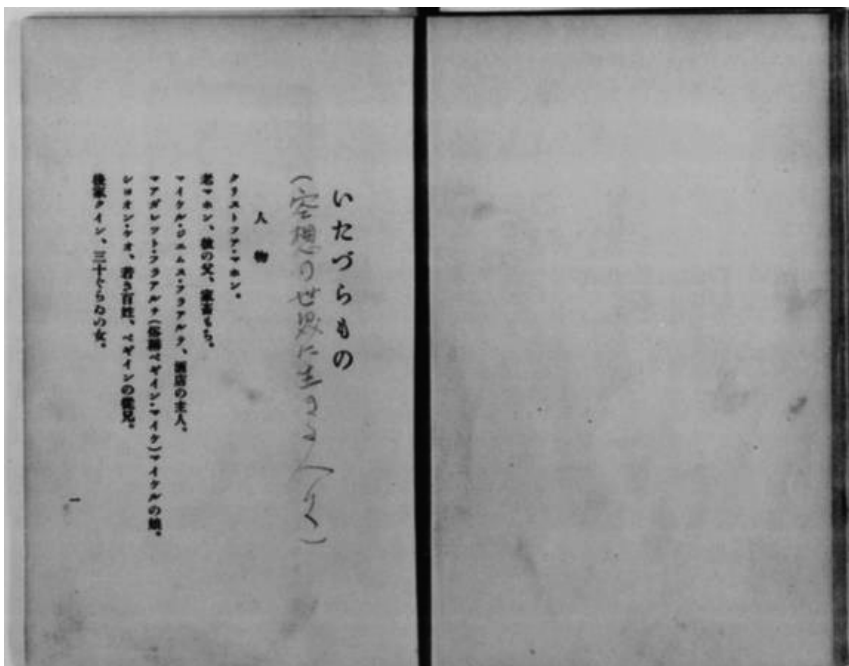 いたづらもの
(空想の世界に生きる人々)
人物
クリストフア・マホン。
老マホン、彼の父、家畜もち。
マイケル・ジエムス・フラアルチ、酒店の主人。
マアガレツト・フラアルチ(俗稱ペギイン・マイク)マイケルの娘。
シヨオン・ケオ、若き百姓、ペギインの從兄。
後家クイン、三十ぐらゐの女。
一